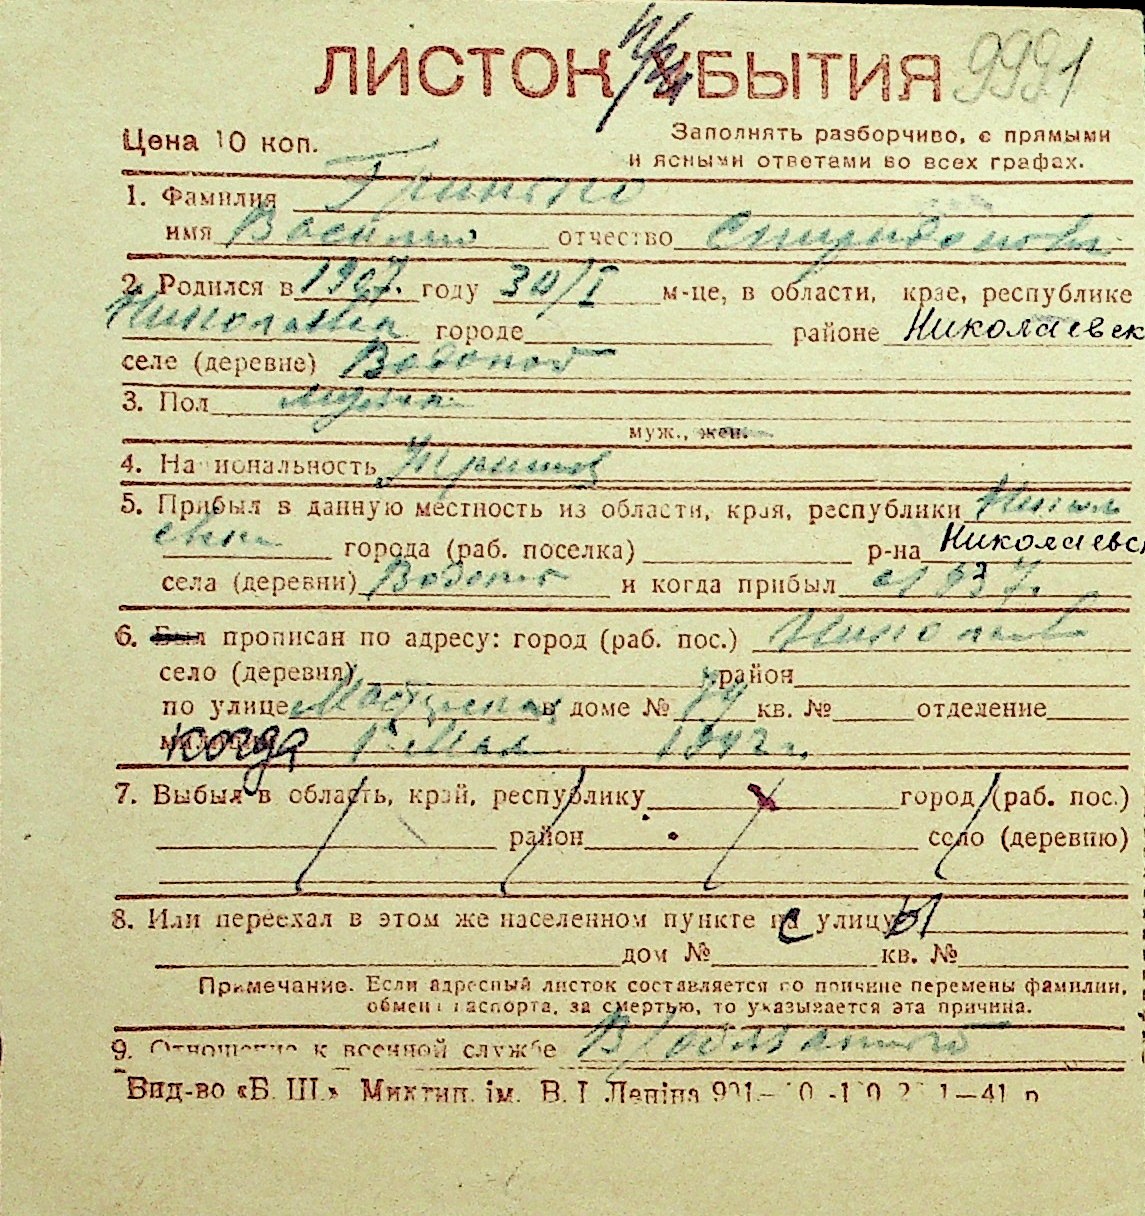 ЛИСТОК УБЫТИЯ 9991
Цена 10 коп.
Заполнять разборчиво, с прямыми
и ясными ответами во всех графах.
1. Фамилия Гринько
имя Василий отчество Спиридонович
2. Родился в 1907. году 30/I м-це, в области, крае, республике
Николаевка городе районе Николаевск
селе (деревне) Водопой
3. Пол мужч.
муж., жен.
4. Национальность Украинец
5. Прибыл в данную местность из области, края, республики Никола
евка города (раб. поселка) р-на Николаевс
села (деревни) Водопой и когда прибыл с 1937.
6. Был прописан по адресу: город (раб. пос.) Николаев
село (деревня) район
по улице в доме № кв. № отделение
когда 1 Мая 1942 г.
7. Выбыл в область, край, республику город (раб. пос.)
район село (деревню)
8. Или переехал в этом же населенном пункте с улицы
дом № кв. №
Примечание. Если адресный листок составляется по причине перемены фамилии,
обмена паспорта, за смертью, то указывается эта причина.
9. Отношение к военной службе В/обязанный
Вид-во «Б. Ш.» Миктип. ім. В. І Леніна